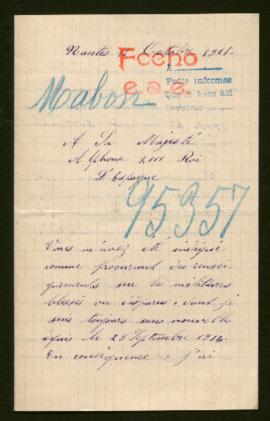 Nantes Octobre
Fecho
e.a.e.
Pedir informes
Mabon
A Sa Majesté
Alphonse XIII Roi
D'Espagne
95.357
Vous m'avez été indiqué
comme procurant des rensei
gnements sur les militaires
blessés ou disparus, dont je
suis toujours sans nouvelle
depuis le 28 Septembre 1916.
En conséquence j'ai